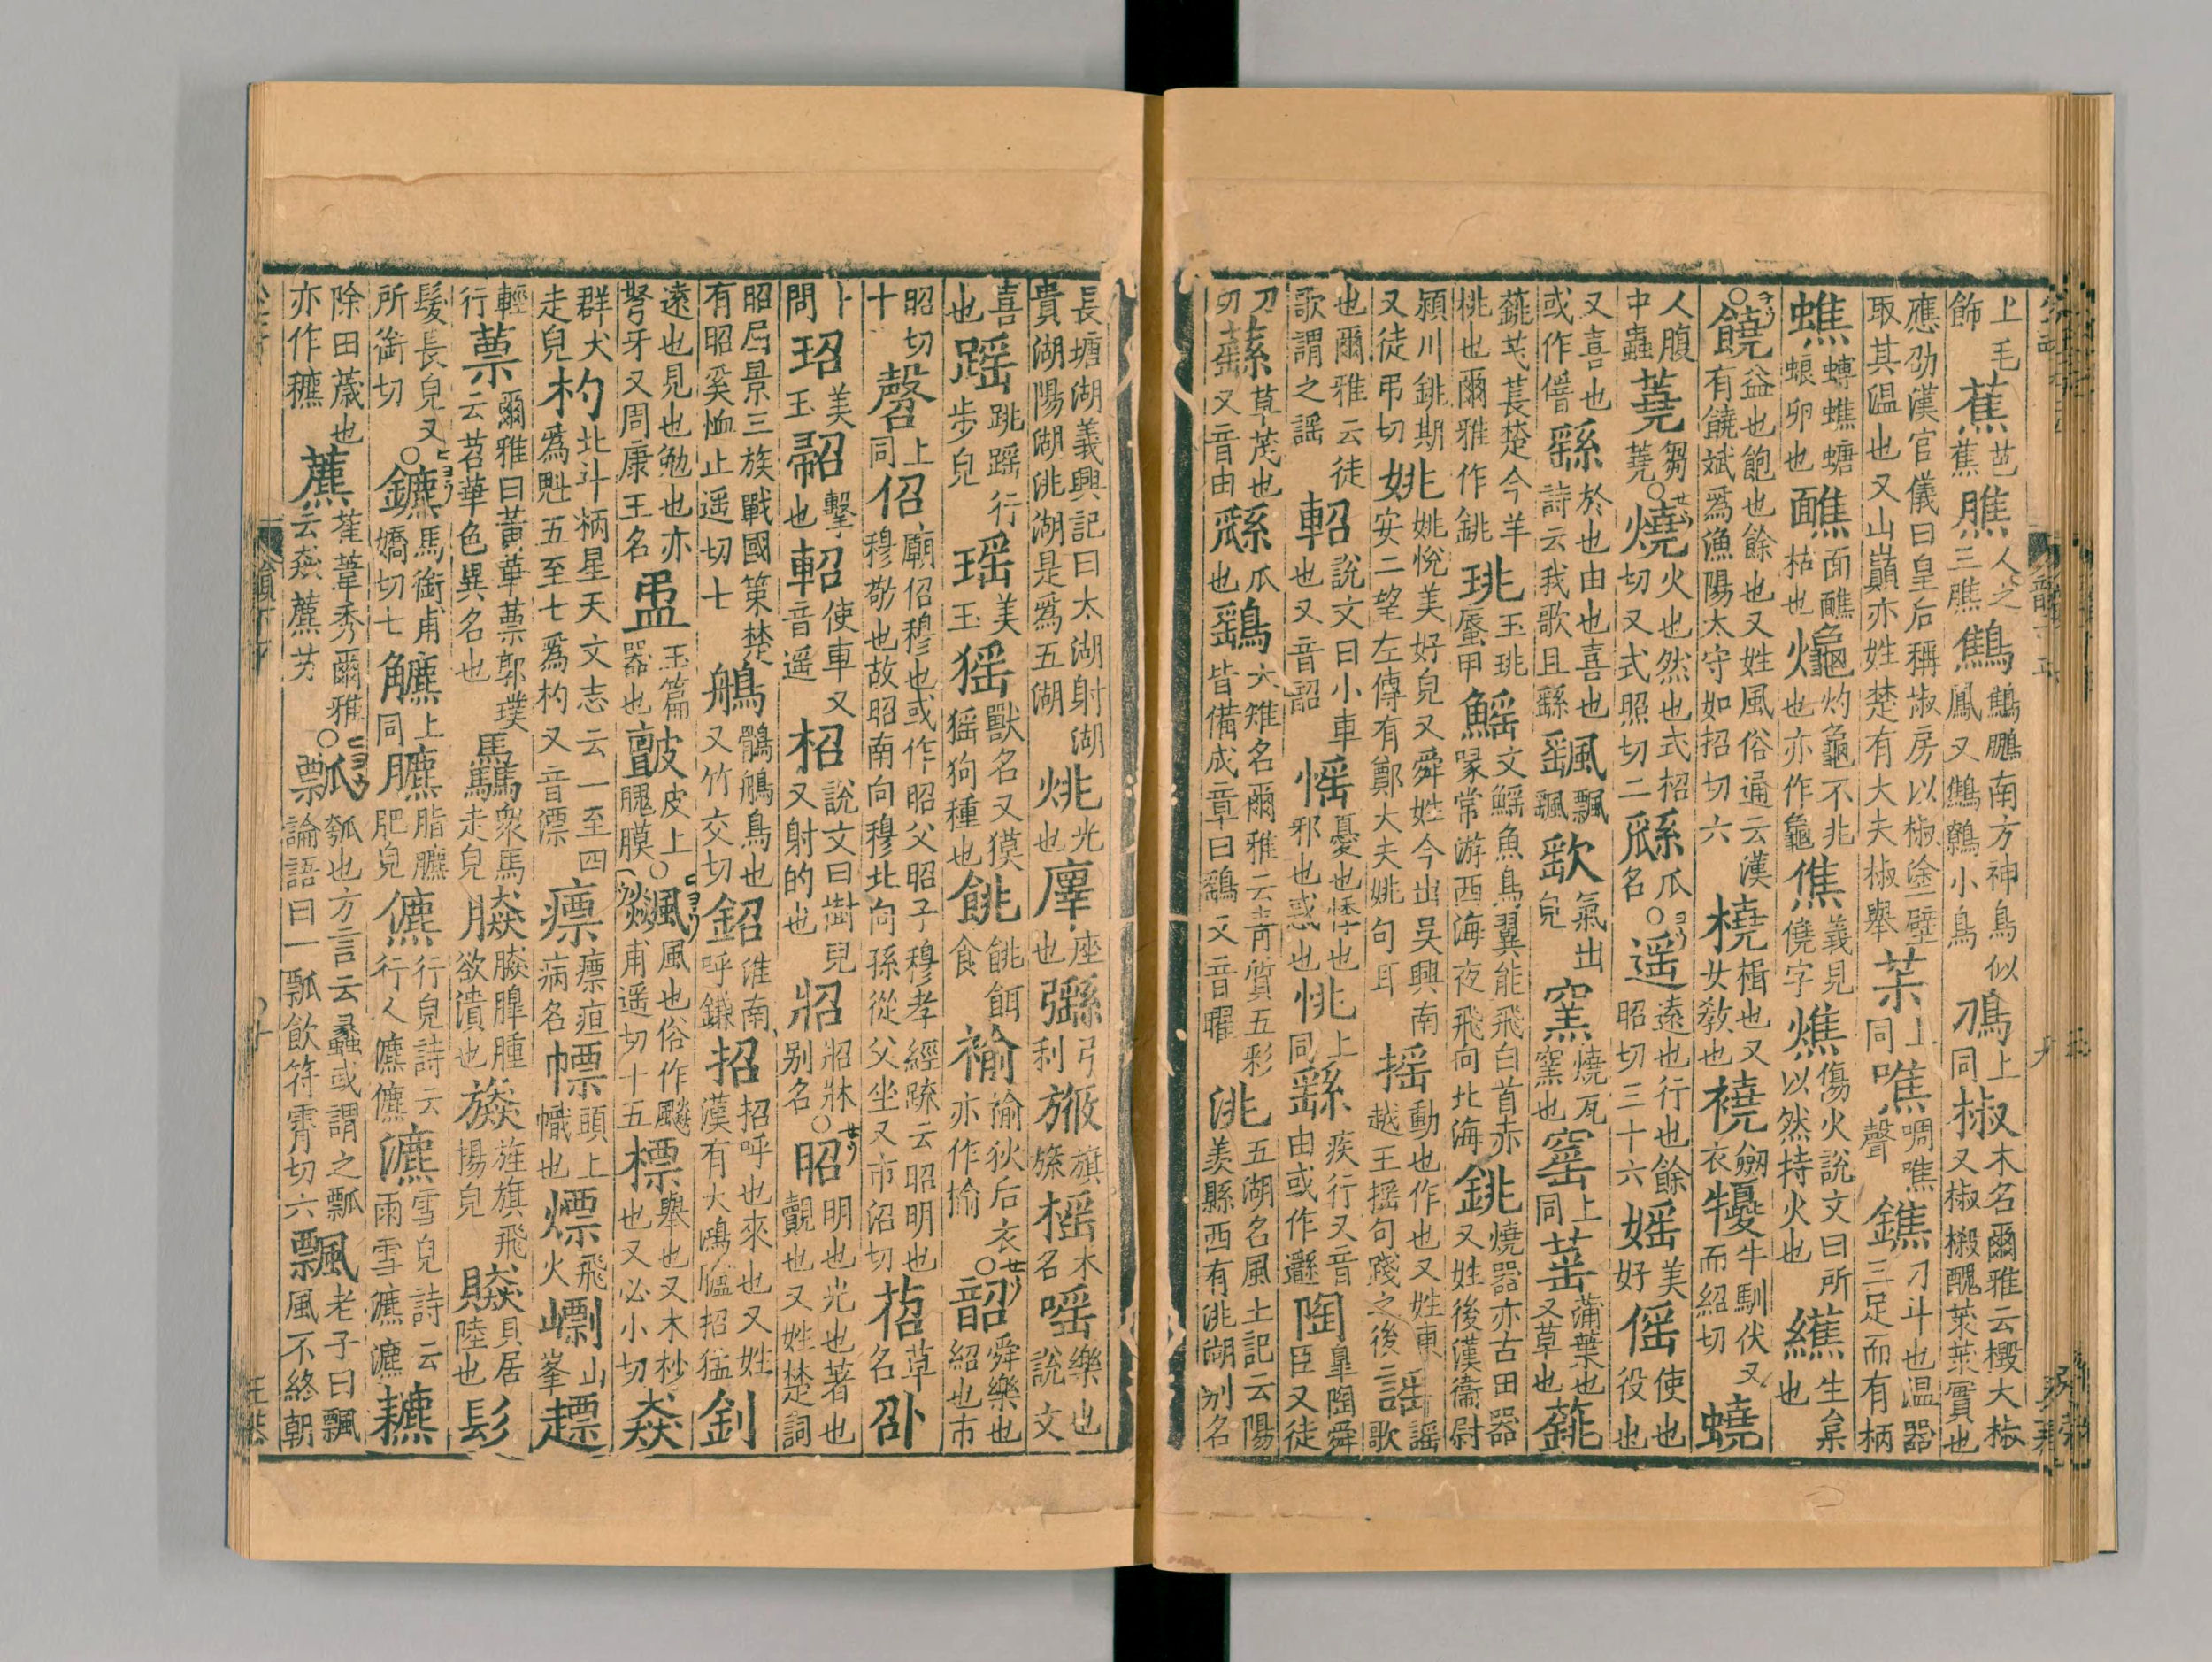 上毛飾 蕉 芭蕉 膲 人之三膲 鷦 鷦䳟南方神鳥似鳳又鷦鷯小鳥 鴵 上同 椒 木名爾雅云檓大椒又椒樧醜莱莱實也
應劭漢官儀曰皇后稱椒房以椒塗壁取其温也又山巔亦姓楚有大夫椒舉 茮 上同 噍 啁噍聲 鐎 刁斗也温器三足而有柄
蟭 蟭螗蜋卵也 䩌 面䩌枯也 灼龜不兆也亦作 僬 義見僥字 燋 傷火說文曰所以然持火也 䌭 生枲也
○饒 益也飽也餘也又姓風俗通云漢有饒斌爲漁陽太守如招切六 橈 楫也又女教也 襓 劒衣 㹛 牛馴伏又而紹切 蟯
人腹中蟲 蕘 芻蕘 ○燒 火也然也式招切又式照切二 䌛 瓜名 ○遥 遠也行也餘昭切三十六 媱 美好 傜 使也役也
又喜也或作僐 繇 於也由也喜也詩云我歌且繇 颻 飄颻 歊 氣出皃 窯 燒瓦窯也 窰 上同 䔄 蒲葉也又草也 䔛
䔛芅萇楚今羊桃也爾雅作銚 珧 玉珧蜃甲 鰩 文鰩魚鳥翼能飛白首赤喙常游西海夜飛向北海 銚 燒器亦古田器又姓後漢衞尉
潁川銚期又徒弔切 姚 姚悅美好皃又舜姓今出吳興南安二望左傳有鄭大夫姚句耳 摇 動也作也又姓東越王摇句踐之後 謡 謡歌
也爾雅云徒歌謂之謡 軺 說文曰小車也又音韶 愮 憂也悸也邪也惑也 恌 上同 繇 疾行又音由或作邎 陶 臯陶舜臣又徒
刀切 蘨 草茂也又音由 瓜也 鷂 大雉名爾雅云青質五彩皆備成章曰鷂又音曜 洮 五湖名風土記云陽羡縣西有洮湖别名
長塘湖義興記曰太湖射湖貴湖陽湖洮湖是爲五湖 烑 光也 座也 弓利 旗旒 榣 木名 嗂 樂也說文
喜也 䠛 跳䠛行步皃 瑶 美玉 猺 獸名又獏猺狗種也 餆 餆餌食 褕 褕狄后衣亦作揄 ○韶 舜樂也紹也市
昭切十 㲈 上同 佋 廟佋穆也或作昭父昭子穆孝經疏云昭明也穆敬也故昭南向穆北向孫從父坐又市沼切 萔 草名 卲
卜問 玿 美玉 㲈 擊也 軺 使車又音遥 柖 說文曰樹皃又射的也 牊 牊牀别名 ○昭 明也光也著也覿也又姓楚詞
昭屈景三族戰國策楚有昭奚恤止遥切七 鵃 鶻鵃鳥也又竹交切 鉊 淮南呼鎌 招 招呼也來也又姓漢有大鴻臚招猛 釗
遠也見也勉也亦弩牙又周康王名 玉篇器也 皮上膜 ○飆 風也俗作飈甫遥切十五 標 舉也又木杪也又必小切 猋
群犬走皃 杓 北斗柄星天文志云一至四爲魁五至七爲杓又音漂 瘭 瘭疽病名 幖 頭上幟也 熛 飛火 山峯 趭
輕行 蔈 爾雅曰黃華蔈郭璞云苕華色異名也 驫 衆馬走皃 膘 腫欲潰也 旚 旌旗飛揚皃 貝居陸也 髟
髮長皃又所銜切 ○鑣 馬銜甫嬌切七 觼 上同 臕 脂臕肥皃 儦 行皃詩云行人儦儦 瀌 雪皃詩云雨雪瀌瀌 穮
除田薉也亦作穮 藨 萑葦秀爾雅云猋藨芀 ○瓢 瓠也方言云蠡或謂之瓢論語曰一瓢飲符霄切六 飄 老子曰飄風不終朝